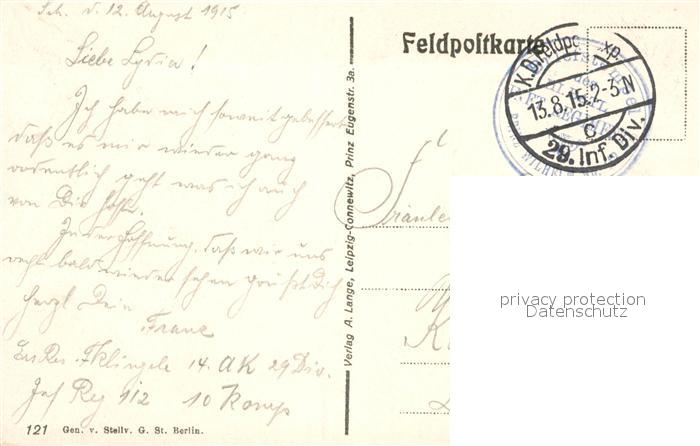 d. 12. August 1915
Liebe Lydia!
Ich habe mich soweit gebessert
daß es mir wieder ganz
ordentlich geht was ich auch
von Dir hoffe.
In der Hoffnung, daß wir uns
recht bald wieder sehen grüßt Dich
herzl Dein
Franz
Ers Res. F Klingele 14. AK 29 Div.
Inf Reg 112 10 Komp
121 Gen. v. Stellv. G. St. Berlin.
Verlag A. Lange, Leipzig-Connewitz, Prinz Eugenstr. 3a.
Feldpostkarte
K.D. Feldpost xp.
13.8.15. 2-3N
c
29. Inf. Div.
Fräulein
privacy protection
Datenschutz